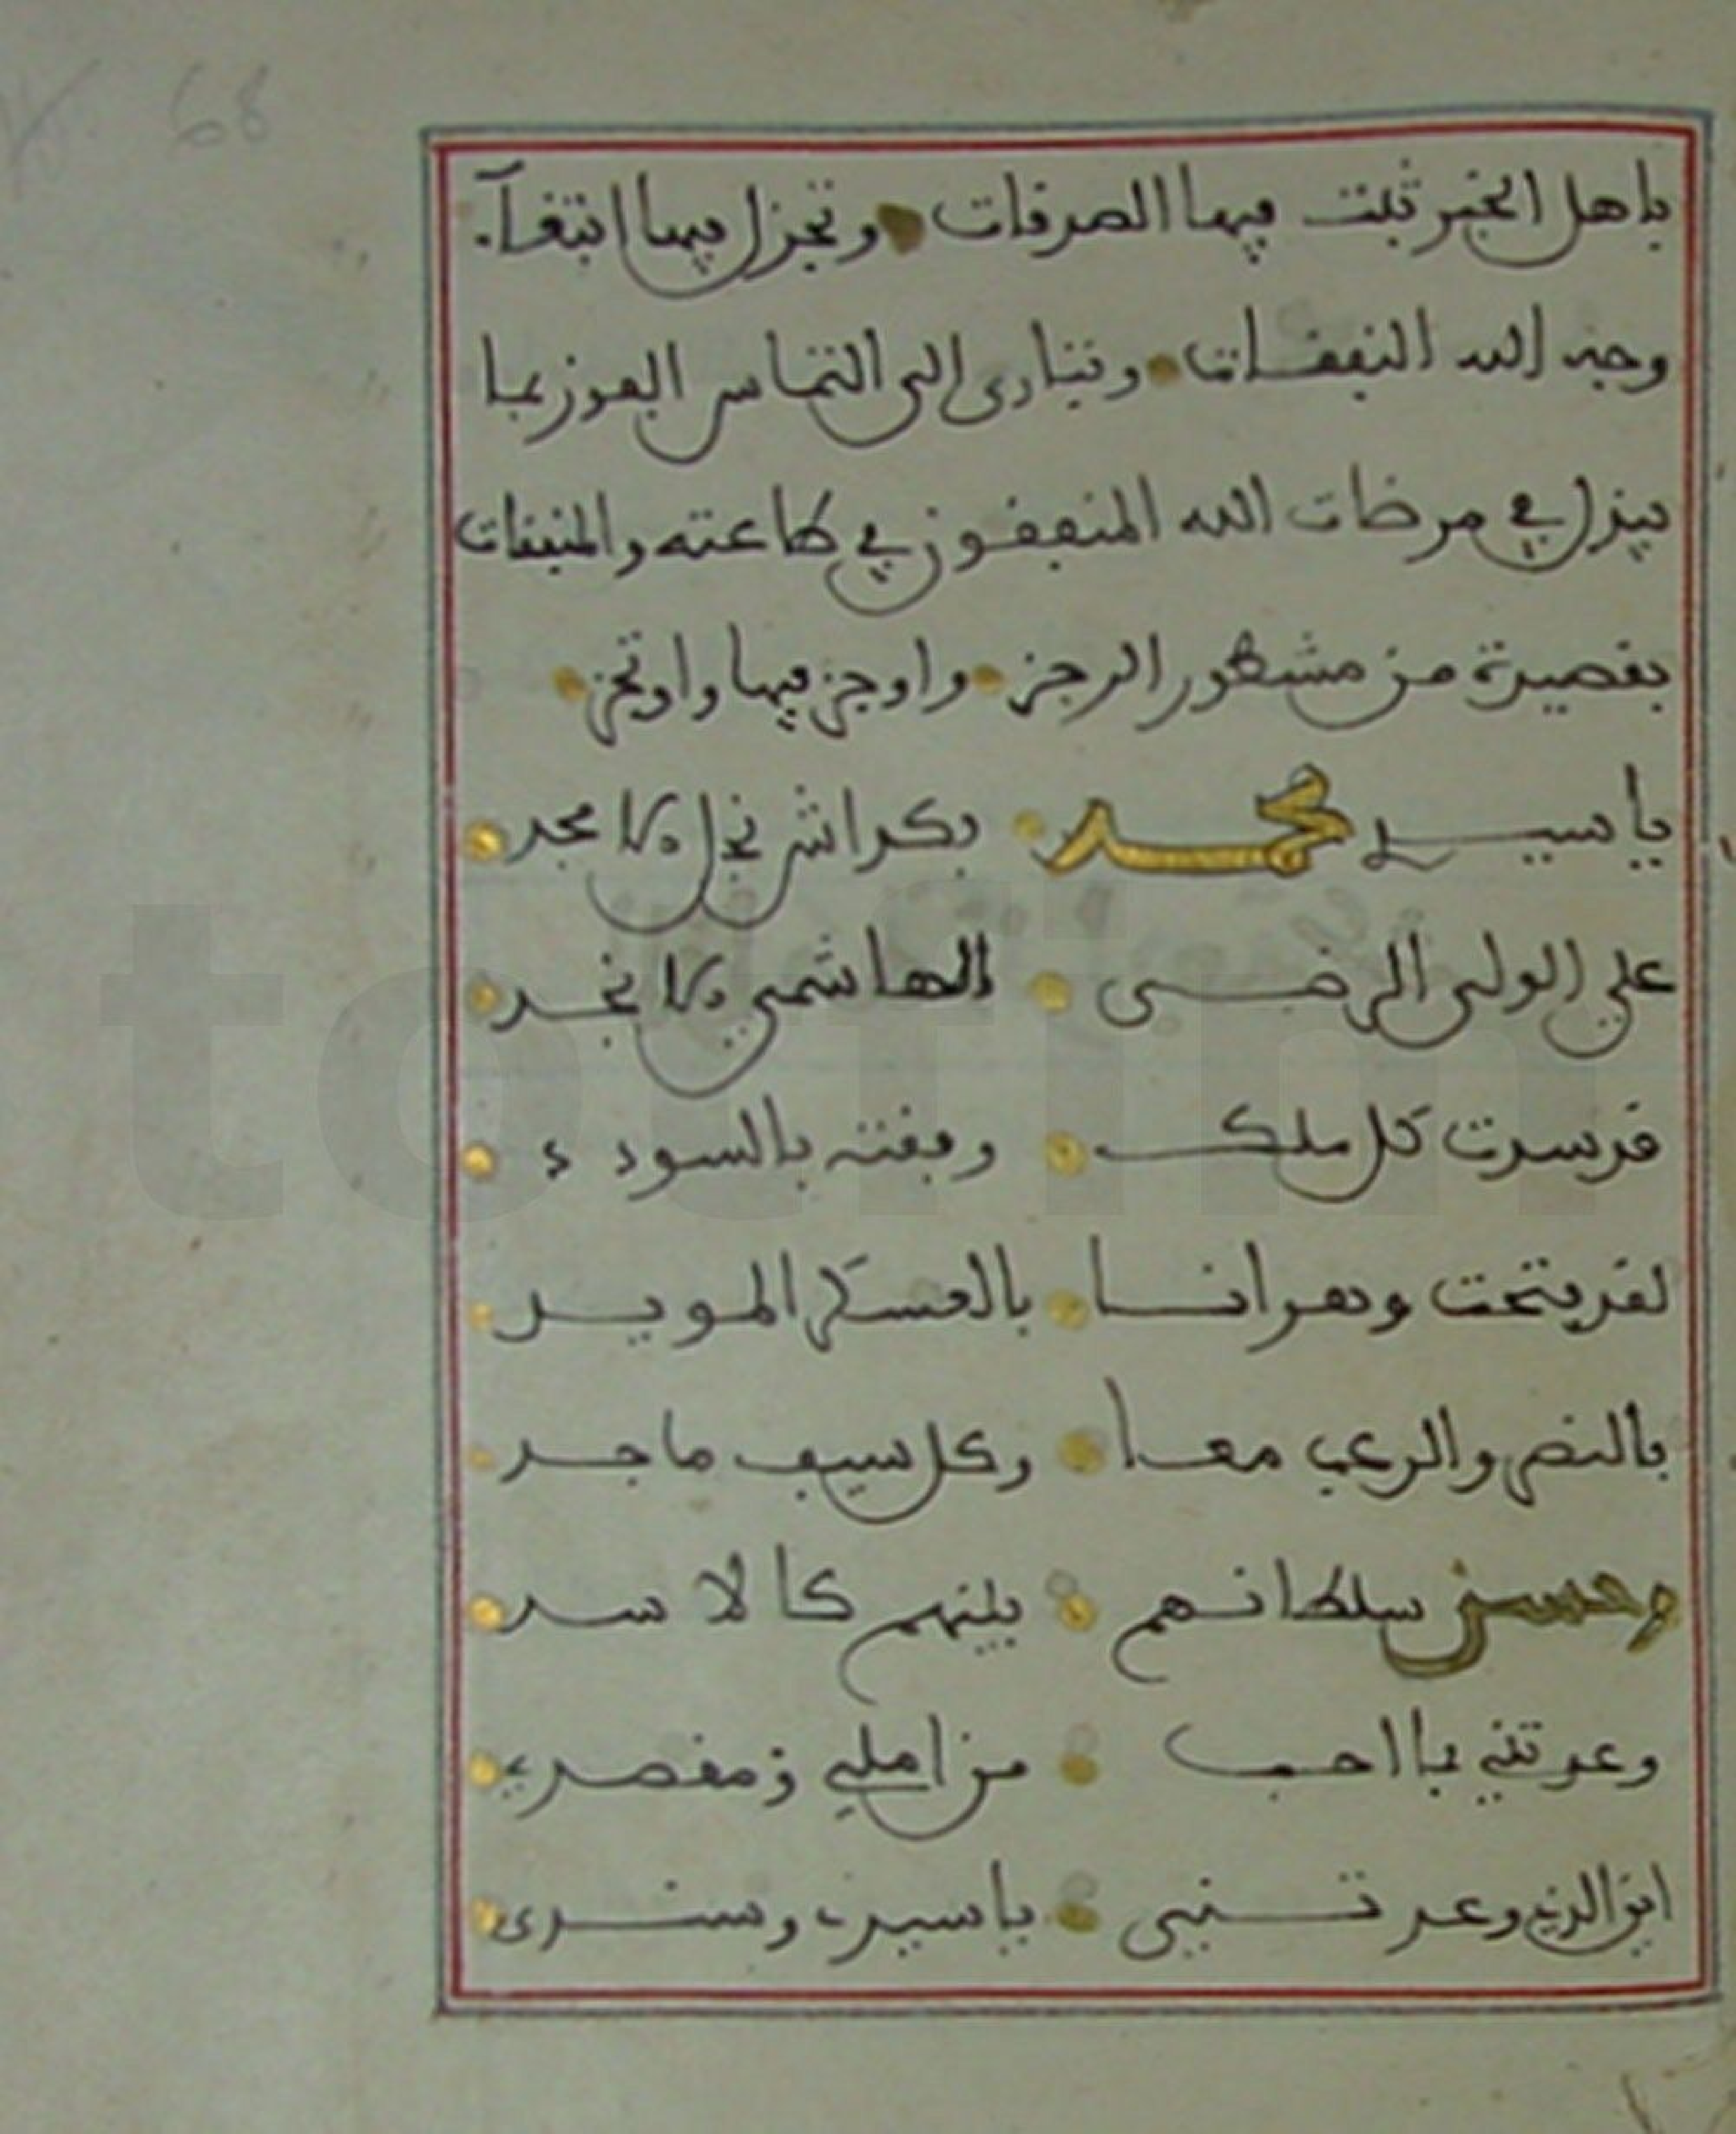 68
باهل الخير ثبتت فيها الصدقات وتجزل فيها ابتغآء
وجه الله النفقات وتتبارى الى التماس الفوز بما
ينزل في مرضات الله المنفقون في طاعته والمنفقات
بقصيدة من مشطور الرجز واوجز فيها
يا سيدي محمد بكداش نجل الامجد
علي الولي الرضى الهاشمي الانجد
قد سدت كل ملك وفقته بالسودد
لقد فتحت وهرانا بالعسكر المويد
بالنصر والرعب معا وكل سيف ماجد
وحسن سلطانهم يليهم كالاسد
وعدتني بما احب من املي ومقصدي
اين الذي وعدتني يا سيدي وسندي
tourn